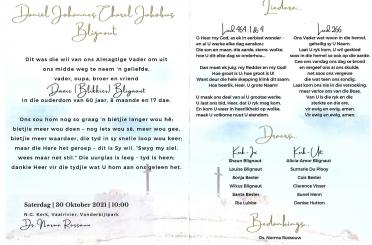 Daniel Johannes Charel Jakobus
Blignaut
Dit was die wil van ons Almagtige Vader om uit
ons midde weg te neem 'n geliefde,
vader, oupa, broer en vriend
Danie (Blikkies) Blignaut
in die ouderdom van 60 jaar, 8 maande en 17 dae.
Ons sou hom nog so graag 'n bietjie langer wou hê;
bietjie meer wou doen - nog iets wou sê, meer wou gee,
bietjie meer waardeer, die tyd in sy snelle loop wou keer;
maar die Here het geroep - dit is Sy wil. "Swyg my siel,
wees maar net stil." Die uurglas is leeg - tyd is heen;
dankie Heer vir die tydjie wat U hom aan ons geleen het.
Saterdag | 30 Oktober 2021 | 10:00
N.G. Kerk, Vaalrivier, Vanderbijlpark
Ds. Norma Rossouw
Liedere..
Lied 464:1 & 4
O Heer my God, as ek in eerbied wonder -
en al U werke elke dag aanskou:
Die son en maan, die aarde, sterre, wolke,
hoe U dit elke dag so onderhou...
Dan moet ek juig, my Redder en my God!
Hoe groot is U, hoe groot is U!
Want deur die hele skepping klink dit saam:
Hoe heerlik, Heer, U grote Naam!
U maak ons deel van al U grootse werke.
U laat ons bid, Heer, dat U ryk mag kom.
En kom U weer in heerlikheid op wolke,
maak U volkome nuut U eiendom.
Lied 266
Ons Vader wat woon in die hemel,
geheilig is U Naam.
Laat U ryk kom, U wil geskied
soos in die hemel so ook op die aarde.
Gee ons vandag ons dag se brood
en vergeef ons al ons skulde
net soos ons vergewe
die wat teen ons sondig.
Laat kom ons nie in die versoeking,
maar verlos ons van die Bose.
Van U is die ryk en die
sterkte en die eer,
vir ewig en ewig, amen.
Vir ewig en ewig, amen.
Draers..
Kerk-In
Shaun Blignaut
Louise Blignaut
Sonja Bester
Wikus Blignaut
Santa Bester
Ria Lubbe
Kerk-Uit
Alicia-Amor Blignaut
Sumarie Du Plooy
Cois Bester
Clarence Visser
Sunel Henn
Denise Hutten
Bedankings..
Ds. Norma Rossouw